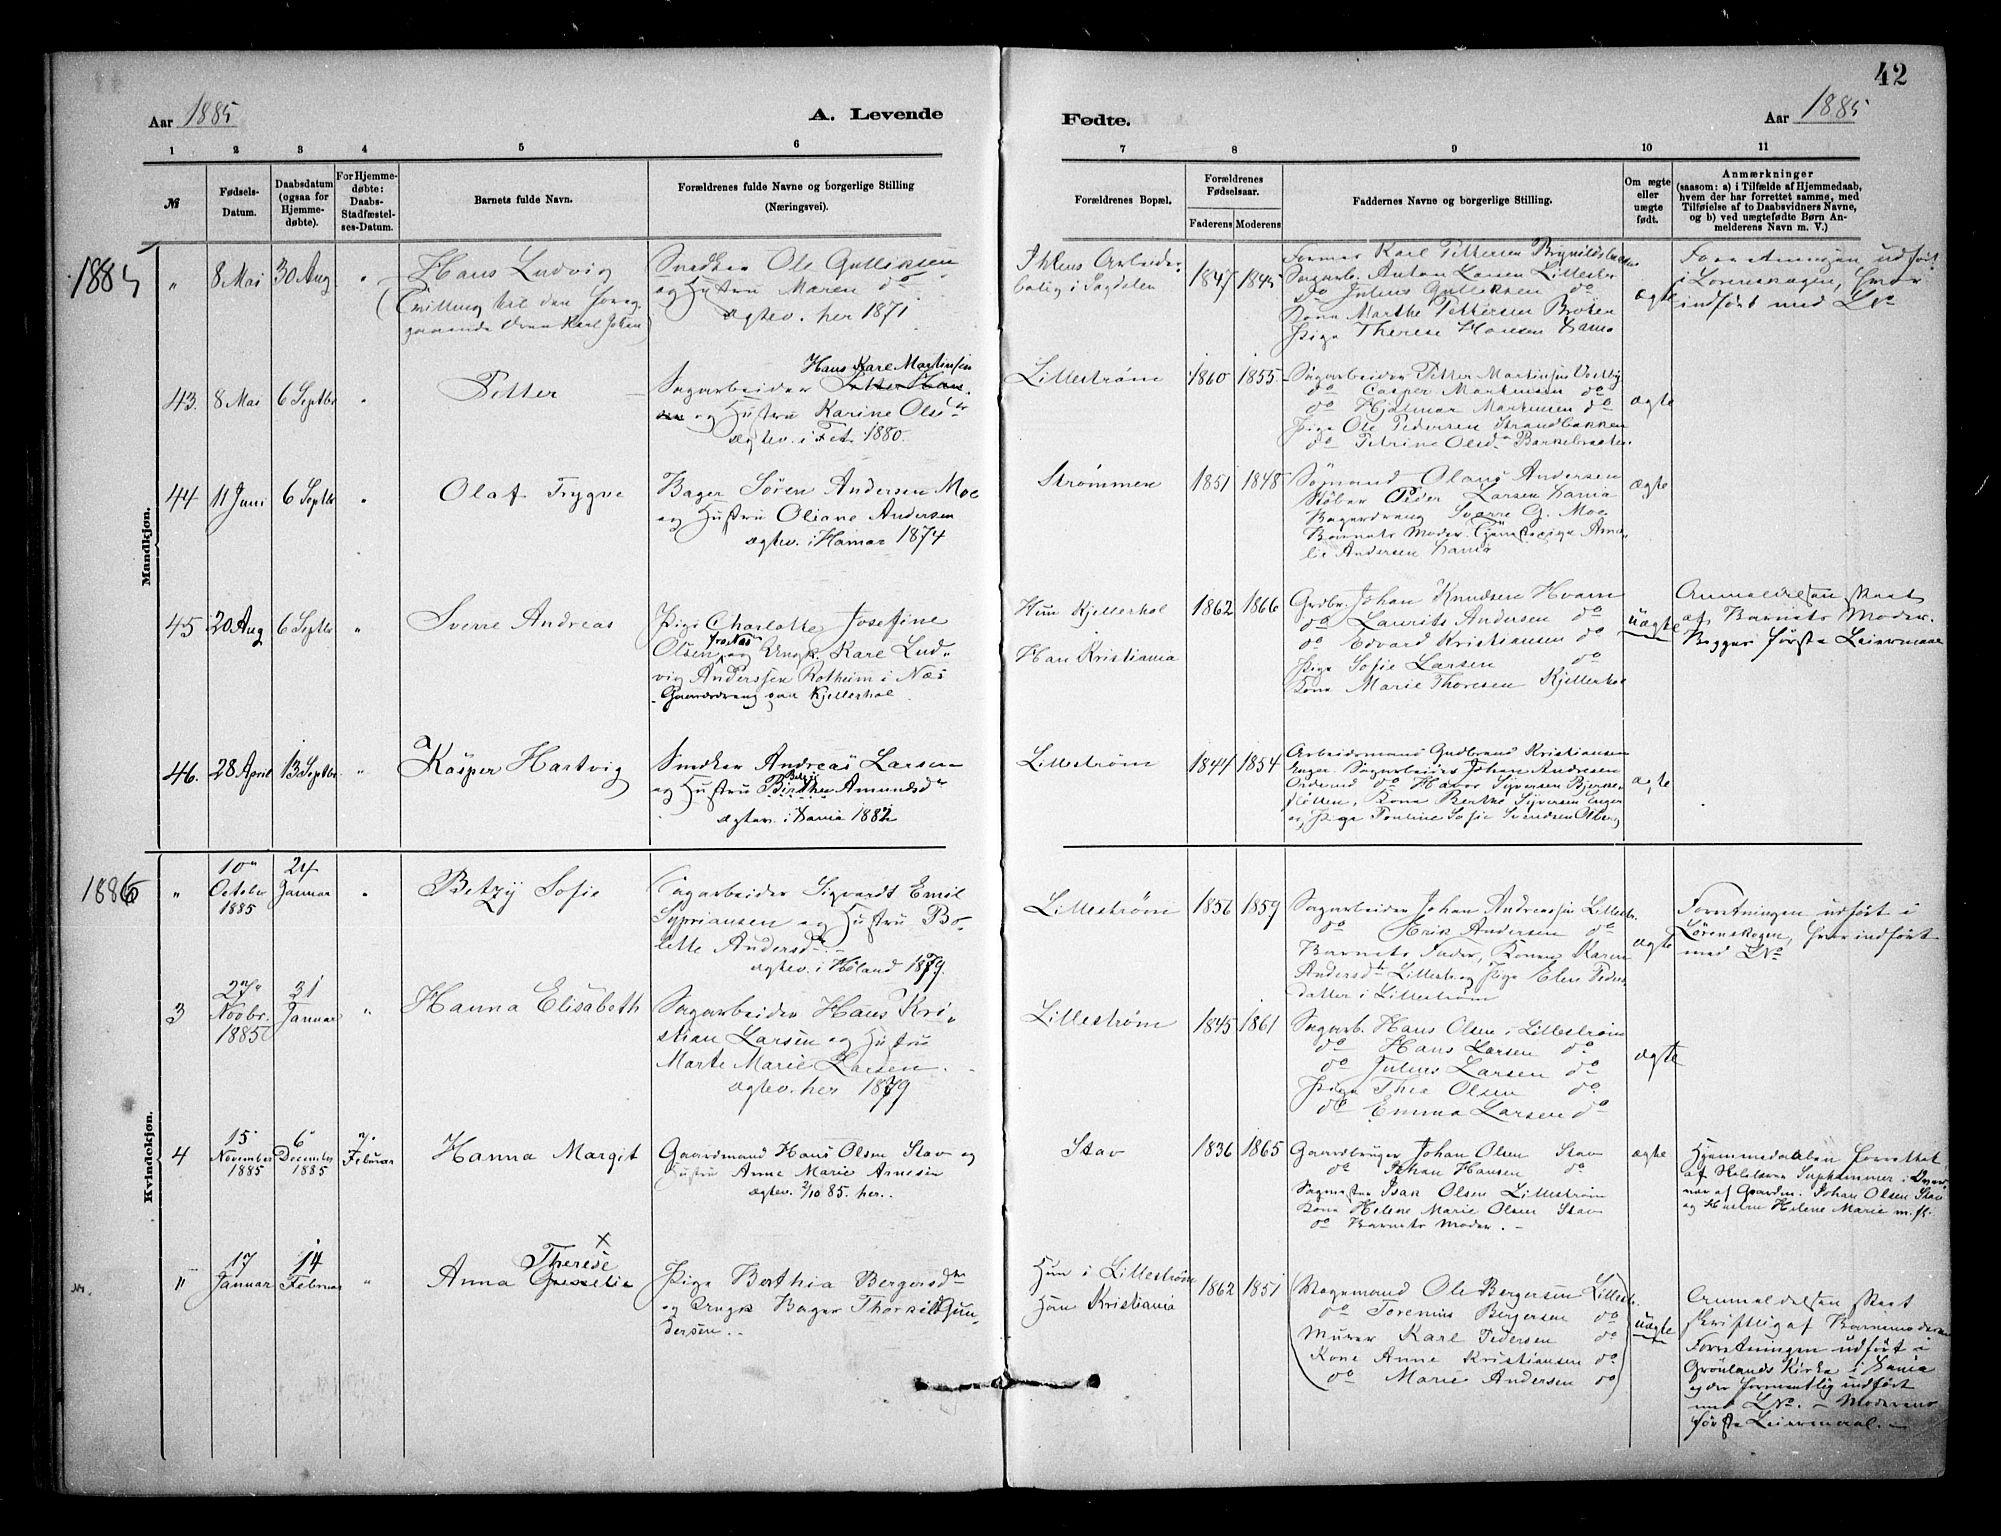 42
Aar 1885
A. Levende
Fødte.
Aar 1885
1 2 3 4 5 6 7 8 9 10 11
№
Fødsels-
Datum.
Daabsdatum
(ogsaa for
Hjemme-
døbte).
For Hjemme-
døbte:
Daabs-
Stadfæstel-
ses-Datum.
Barnets fulde Navn.
Forældrenes fulde Navne og borgerlige Stilling
(Næringsvei).
Forældrenes Bopæl.
Forældrenes
Fødselsaar.
Faderens Moderens
Faddernes Navne og borgerlige Stilling.
Om ægte
eller
uægte
født.
Anmærkninger
(saasom: a) i Tilfælde af Hjemmedaab,
hvem der har forrettet samme, med
Tilføielse af to Daabsvidners Navne,
og b) ved uægtefødte Børn An-
melderens Navn m. V.)
Mandkjøn.
1885
" 8 Mai 30 Aug. "
Hans Ludvig
(Tvilling til den foreg
gaaende Karl Johan)
Snedker Ole Gulliksen
og Hustru Maren do
ægtev. her 1871
Arbeider
bolig i Sagdalen
1847 1845
Former Karl Pettersen
Sagarb. Anton Larsen Lillestr
Do Julius Gulliksen do
Kone Marthe Pettersen Braaten
Pige Therese Hansen Kania
ægte
Forretningen udført
i Lørenskogen, hvor
indført med L№
43. 8 Mai 6 Septbr "
Petter
Hans Karl Martinsen
Sagarbeider
og Hustru Karine Olsdtr
ægtev. i Fet 1880.
Lillestrøm
1860 1855
Sagarbeider Petter Martinsen
do Casper Martinsen do
do Hjalmar Martinsen do
Pige Ole Pedersen Strandbakken
do Petrine Olsd
ægte
44 11 Juni 6 Septbr "
Olaf Trygve
Bager Søren Andersen Moe
og Hustru Oliane Andersen
ægtev. i Hamar 1874
Strømmen
1851 1848
Sømand Olaus Andersen
Støber Peder Larsen Kania
Bagerdreng Sverre G. Moe
Barnets Moder. Tjenestepige Ama-
lie Andersen Kania
ægte
45 20 Aug 6 Septbr "
Sverre Andreas
Pige Charlotte Josefine
fra Næs
Olsen og Ungk. Karl Lud-
vig Anderssen Rotheim i Næs
Gaardsdreng paa Kjellerhol
Hun Kjellerhol
Han Kristiania
1862 1866
Grdbr. Johan Knudsen Hvam
do Laurits Andersen do
do Edvard Kristiansen do
Pige Sofie Larsen do
Kone Marie Thoresen Kjellerhol
uægte
Anmeldelsen skeet
af Barnets Moder.
Begges første Leiermaal
46. 28 April 13 Septbr "
Kasper Hartvig
Smeden Andreas Larsen
og Hustru Birthe Amundsd
ægtev. i Kania 1882
Lillestrøm
1844 1854
Arbeidsmand Gudbrand Kristiansen
Enger. Sagarbeider Johan Andresen
Orderud do Havor Syversen Bjerke-
fløtten, Kone Berthe Syversen Enger
og Pige Pauline Sofie Svendsen
ægte
Kvindekjøn.
1886
" 10 Octobr 1885 24 Januar "
Betzy Sofie
Sagarbeider Sigvardt Emil
Sypriansen og Hustru Bo-
lette Andersd
ægtev. i Høland 1879.
Lillestrøm
1856 1859
Sagarbeider Johan Andreassen Lillestr.
do Erik Andersen do
Barnets Fader, Konen Karen
Andersdtr Lillestr og Pige Elen Peders
datter i Lillestrøm
ægte
Forretningen udført i
Lørenskogen, hvor indført
med L№
3 27 Novbr. 1885 31 Januar "
Hanna Elisabeth
Sagarbeider Hans Kri-
stian Larsen og Hustru
Marte Marie Larsen.
ægtev. her 1879
Lillestrøm
1845 1861
Sagarb. Hans Olsen i Lillestrøm
do Hans Larsen do
do Julius Larsen do
Pige Thea Olsen do
do Emma Larsen do
ægte
4 15 November 1885 6 December 1885 7 Februar
Hanna Margit
Gaardmand Hans Olsen Stav og
Hustru Anne Marie Arnesen
ægtev. 2/10 85. her.
Stav
1836 1865
Gaardbruger Johan Olsen Stav
do Johan Hansen do
Sagmester Isak Olsen Lillestrøm
Kone Helene Marie Olsen Stav
do Barnets Moder. –
ægte
Hjemmedaaben forrettet
af Skolelærer
nær af Gaarden. Johan Olsen Stav
og Hustru Helene Marie
" 17 Januar 14 Februar "
Therese ×
Anna
Pige Berthia Bergersdtr
og Ungk Bager Thorkild Gun-
dersen. –
Hun i Lillestrøm
Han Kristiania
1862 1851
(Vognmand Ole Bergersen Lillestr.
do Torenius Bergersen do
Murer Karl Pedersen do
Kone Anne Kristiansen do
do Marie Andersen do)
uægte
Anmeldelsen skeet
skriftlig af Barnemoderen
Forretningen udført i
Grønlands Kirke i Kania
og der formentlig indført
med L№. – Moderens
første Leiermaal. –